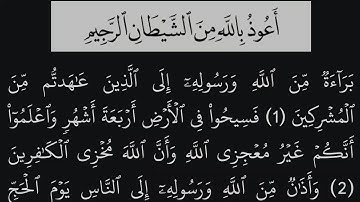 أَعُوذُ بِٱللَّهِ مِنَ ٱلشَّيْطَانِ ٱلرَّجِيمِ
بَرَآءَةٌ مِّنَ ٱللَّهِ وَرَسُولِهِۦٓ إِلَى ٱلَّذِينَ عَـٰهَدتُّم مِّنَ
ٱلْمُشْرِكِينَ (1) فَسِيحُوا۟ فِى ٱلْأَرْضِ أَرْبَعَةَ أَشْهُرٍ وَٱعْلَمُوٓا۟
أَنَّكُمْ غَيْرُ مُعْجِزِى ٱللَّهِ وَأَنَّ ٱللَّهَ مُخْزِى ٱلْكَـٰفِرِينَ
(2) وَأَذَٰنٌ مِّنَ ٱللَّهِ وَرَسُولِهِۦٓ إِلَى ٱلنَّاسِ يَوْمَ ٱلْحَجِّ